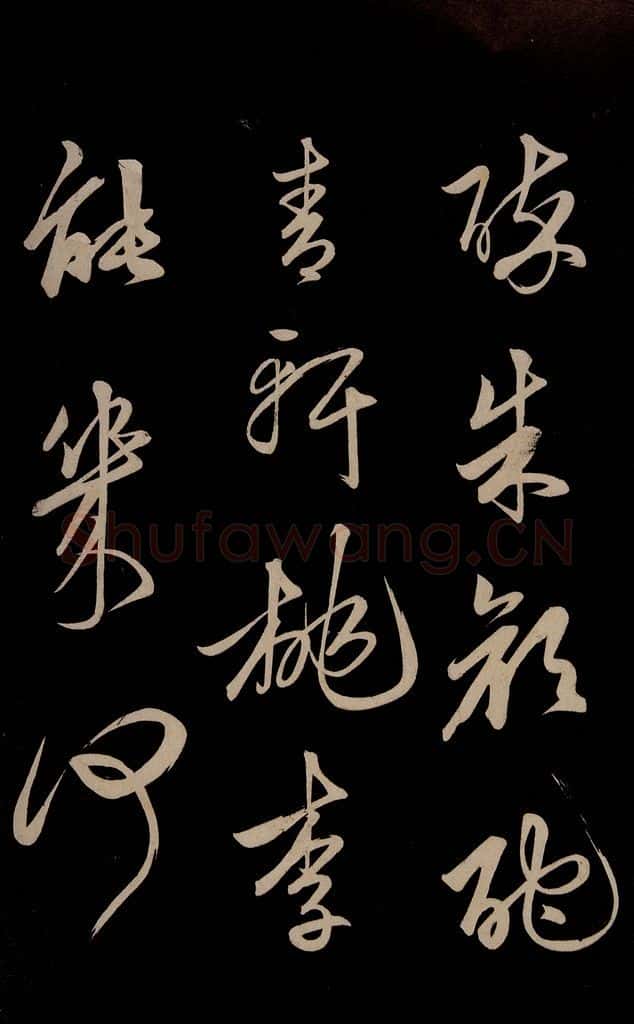 醉朱顏酡
青軒桃李
能幾何
Shufawang.CN